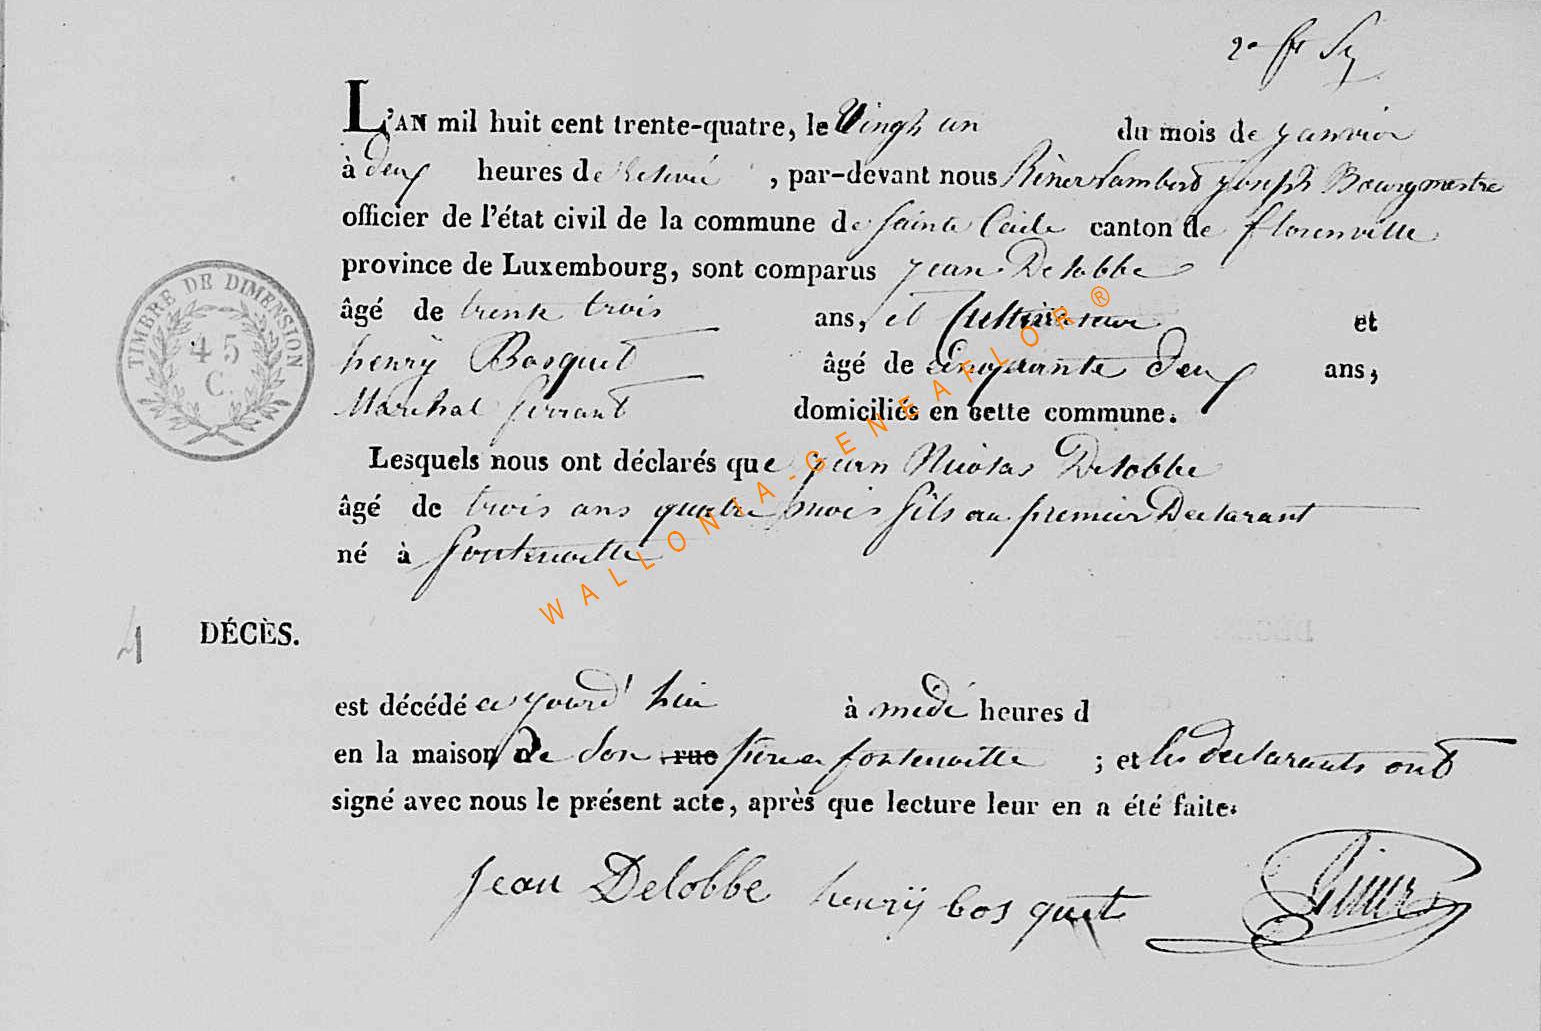 2e
L'AN mil huit cent trente-quatre, le Vingt un du mois de janvier
à deux heures de relevé, par-devant nous Riner Lambert joseph Bourgmestre
officier de l'état civil de la commune de Sainte Cécile canton de florenville
province de Luxembourg, sont comparus jean Delobbe
âgé de trente trois ans, et Cultivateur et
henrÿ Bosquet âgé de cinquante deux ans,
Marechal ferrant domiciliés en cette commune.
Lesquels nous ont déclarés que jean Nicolas Delobbe
âgé de trois ans quatre mois fils au premier Declarant
né à fontenoille
4 DÉCÈS.
est décédé ce jourd'hui à midi heures d
en la maison de Son rue père a fontenoille ; et les declarants ont
signé avec nous le présent acte, après que lecture leur en a été faite.
Jean Delobbe henrÿ bosquet Riner
TIMBRE DE DIMENSION
45
C.
WALLONIA-GENEAFLOR®